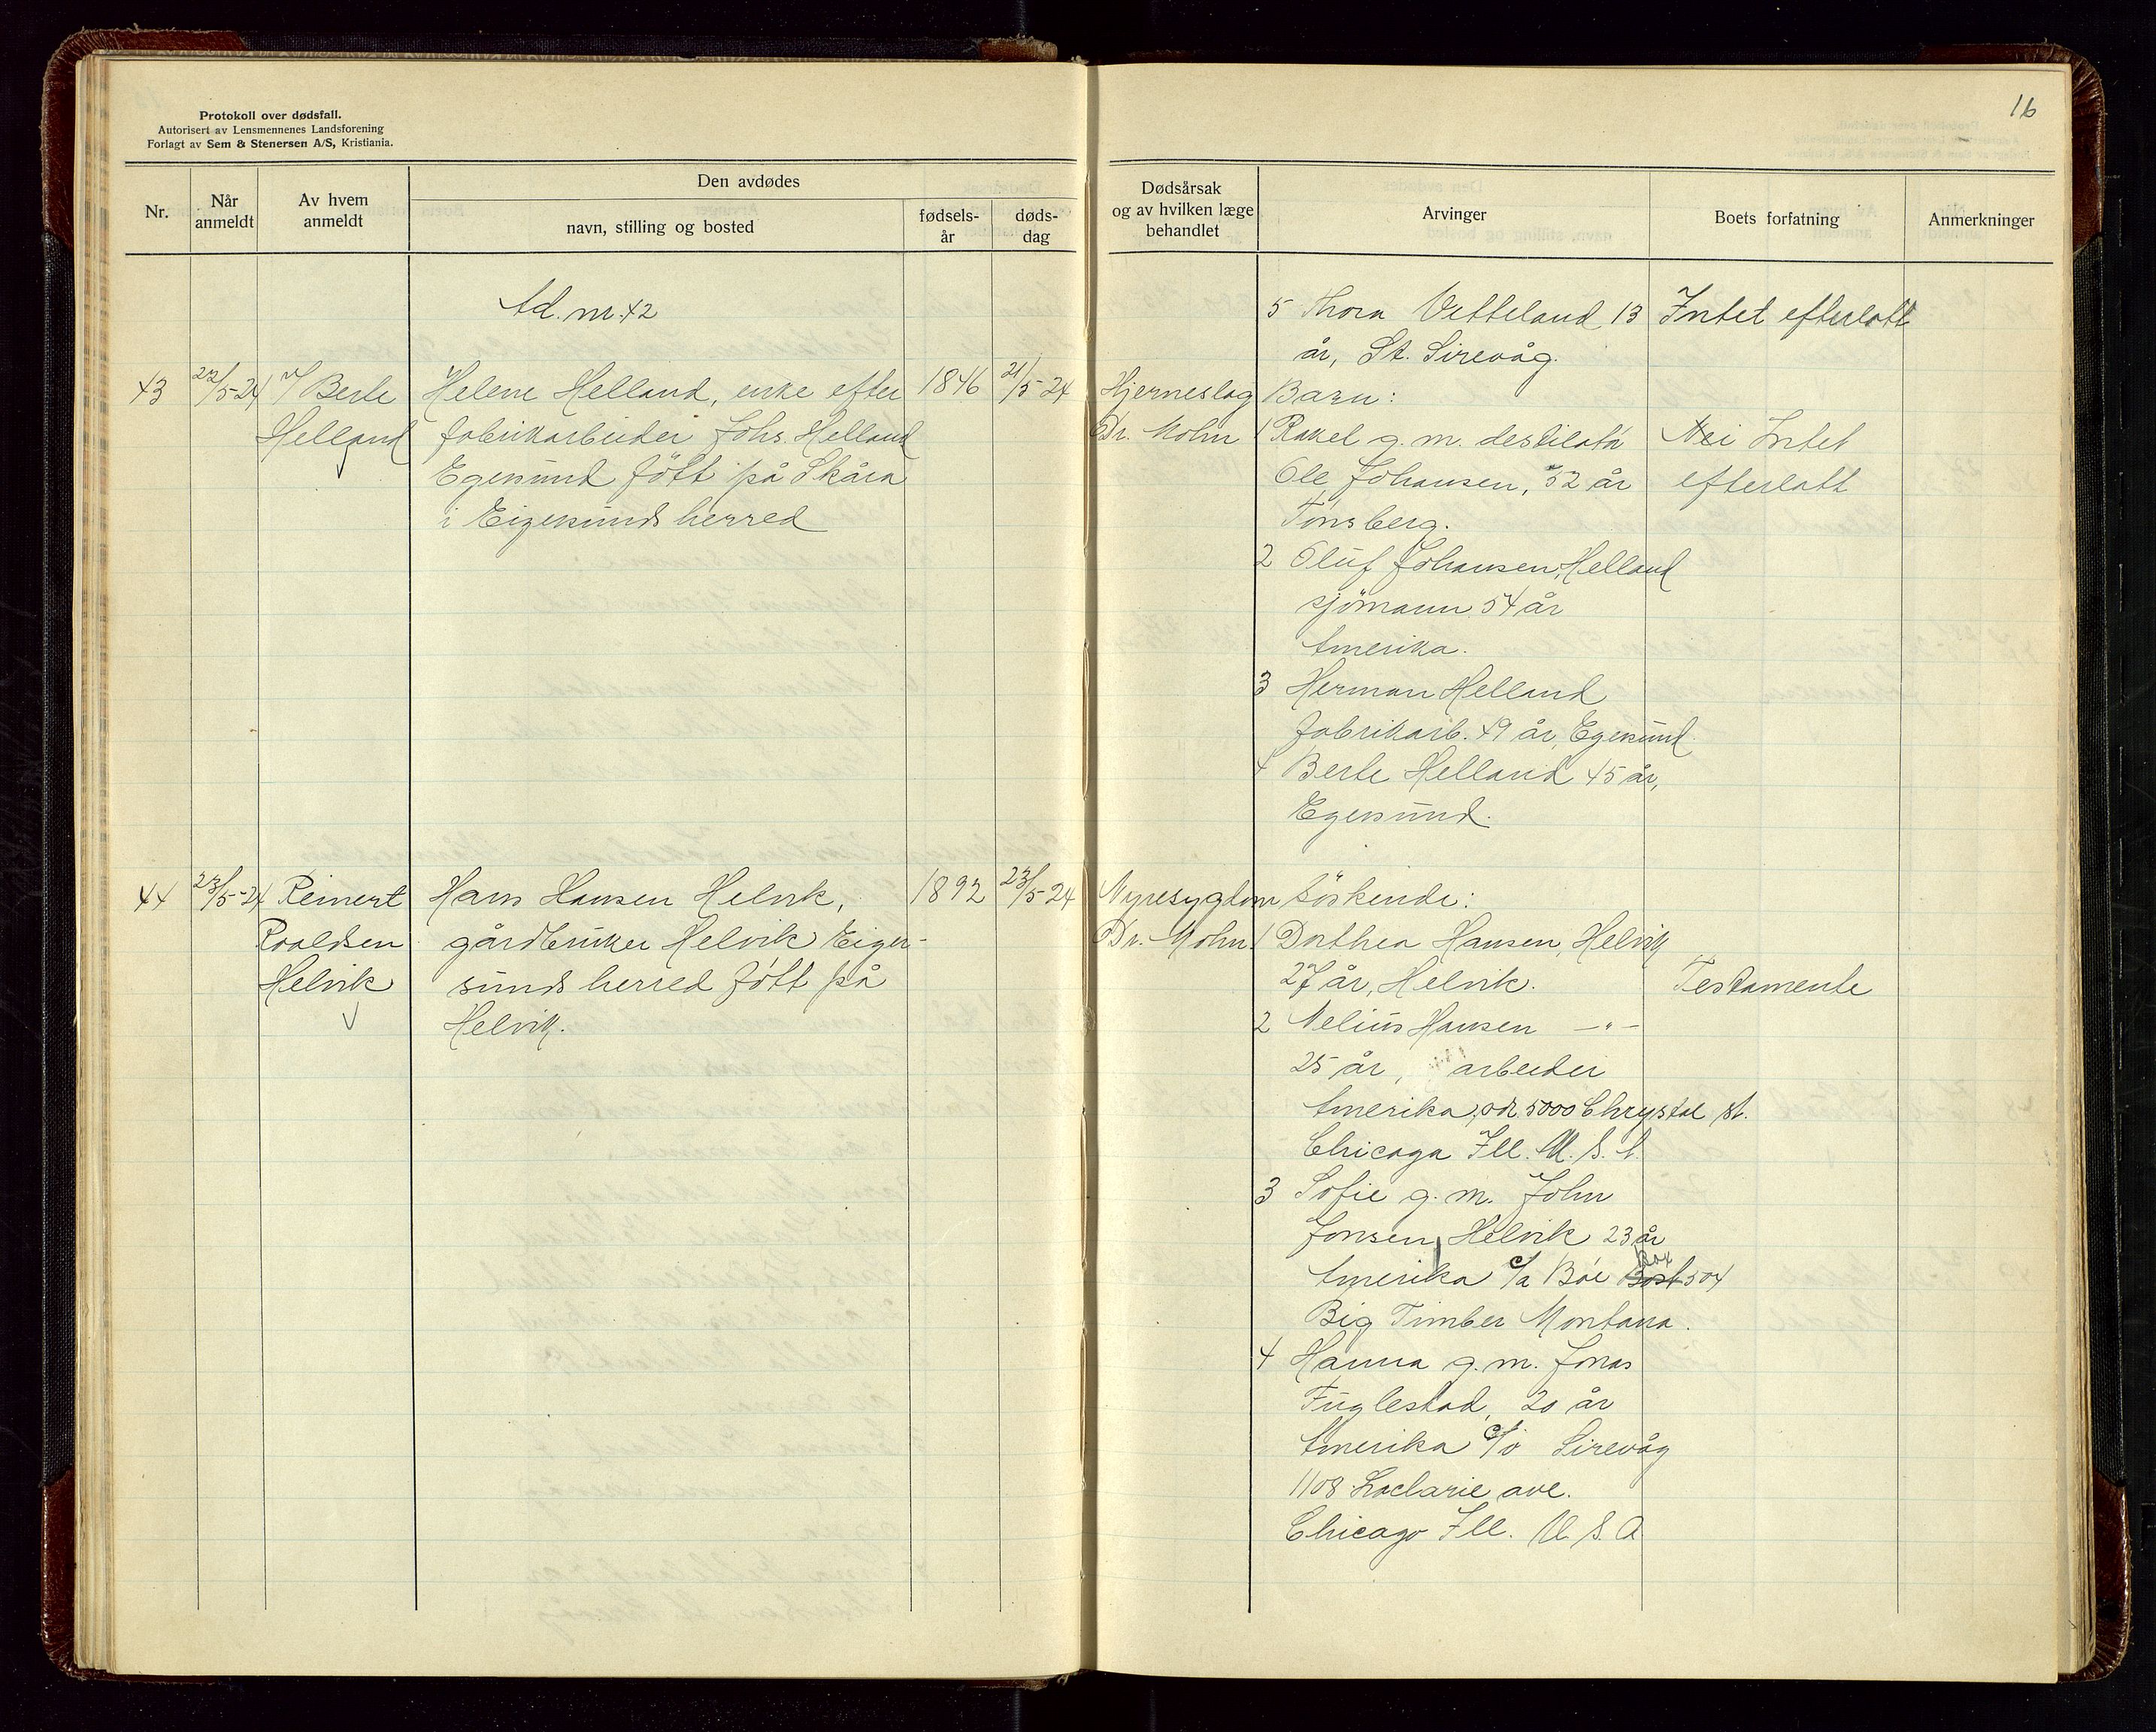 Protokoll over dødsfall.
Autorisert av Lensmennenes Landsforening
Forlagt av Sem & Stenersen A/S, Kristiania.
Nr.
Når anmeldt
Av hvem anmeldt
Den avdødes
navn, stilling og bosted
fødsels-år
døds-dag
Ad. nr. 42
43
22/5-24
Berte
Helland
Helene Helland, enke efter
fabrikarbeider Johs. Helland
Egersund født på Skåra
i Eigersunds herred
1846
21/5-24
44
23/5-24
Reinert
Roaldsen
Helvik
Hans Hansen Helvik,
gårdbruker Helvik Eiger-
sunds herred født på
Helvik.
1892
23/5-24
16
Dødsårsak
og av hvilken læge
behandlet
Arvinger
Boets forfatning
Anmerkninger
5 Thora Vetteland 13
år, St. Sirevåg.
Intet efterlatt
Hjerneslag
Dr. Mohn
Barn:
1 Rakel g. m. destilatør
Ole Johansen, 52 år
Tønsberg.
2 Oluf Johansen, Helland
sjømann 54 år
Amerika.
3 Herman Helland
fabrikarb. 49 år, Egersund
4 Berte Helland 45 år,
Egersund.
Nei Intet
efterlatt
Nyresygdom
Dr. Mohn.
Søskende:
1 Dorthea Hansen, Helvik
27 år, Helvik.
2 Nelius Hansen —"—
25 år, arbeider
Amerika, adr. 5000 Chrystal st.
Chicago Ill. U. S. A.
3 Sofie g. m. John
Jonsen, Helvik 23 år
Amerika c/a Bøe Box 504
Big Timber Montana.
4 Hanna g. m. Jonas
Fuglestad, 20 år
Amerika c/o Sirevåg
1108 Laclarie ave.
Chicago Ill. U. S. A
Testamente